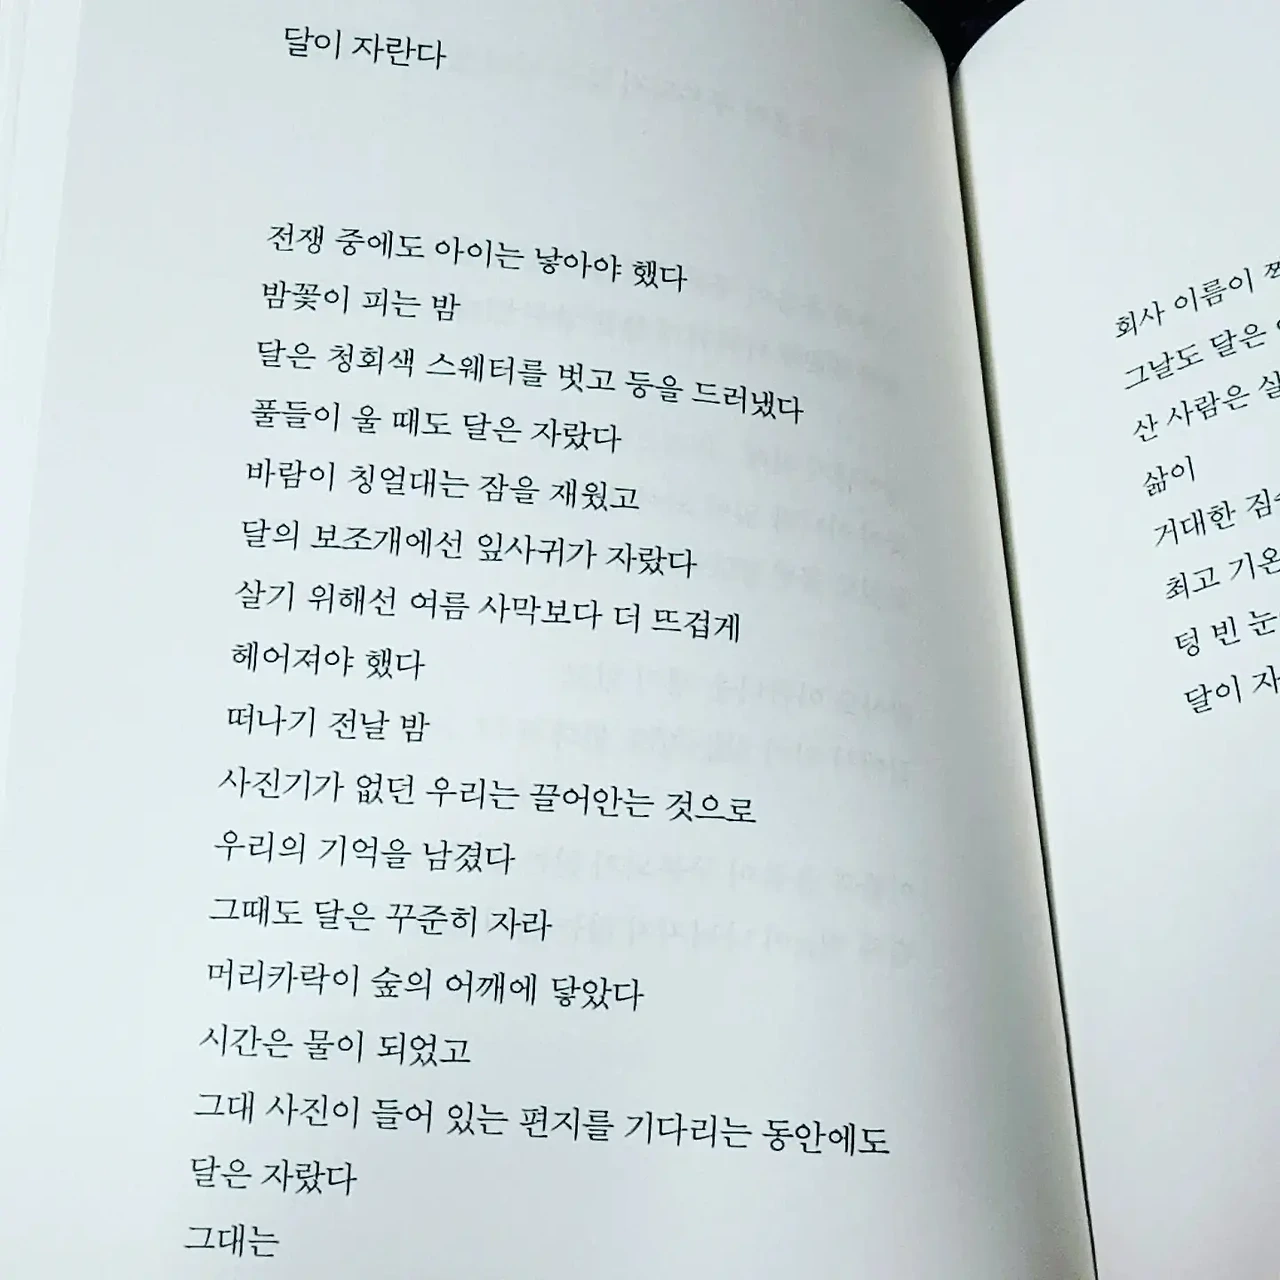 달이 자란다
전쟁 중에도 아이는 낳아야 했다
밤꽃이 피는 밤
달은 청회색 스웨터를 벗고 둥을 드러냈다
풀들이 울 때도 달은 자랐다
바람이 칭얼대는 잠을 재웠고
달의 보조개에선 잎사귀가 자랐다
살기 위해선 여름 사막보다 더 뜨겁게
헤어져야 했다
떠나기 전날 밤
사진기가 없던 우리는 끌어안는 것으로
우리의 기억을 남겼다
그때도 달은 꾸준히 자라
머리카락이 숲의 어깨에 닿았다
시간은 물이 되었고
그대 사진이 들어 있는 편지를 기다리는 동안에도
달은 자랐다
그대는
회사 이름이
그날도 달은
산 사람은
삶이
거대한
최고 기온
텅 빈
달이